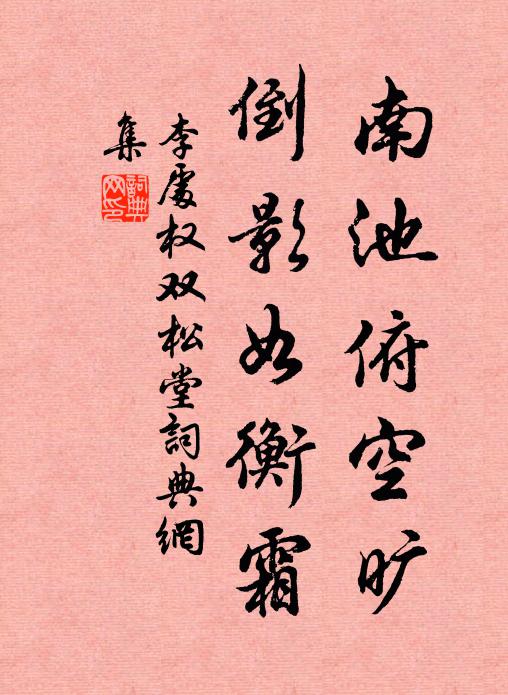 南池俯空旷
倒影如衡霜
李處权双松堂詞典網
集
詞典网印